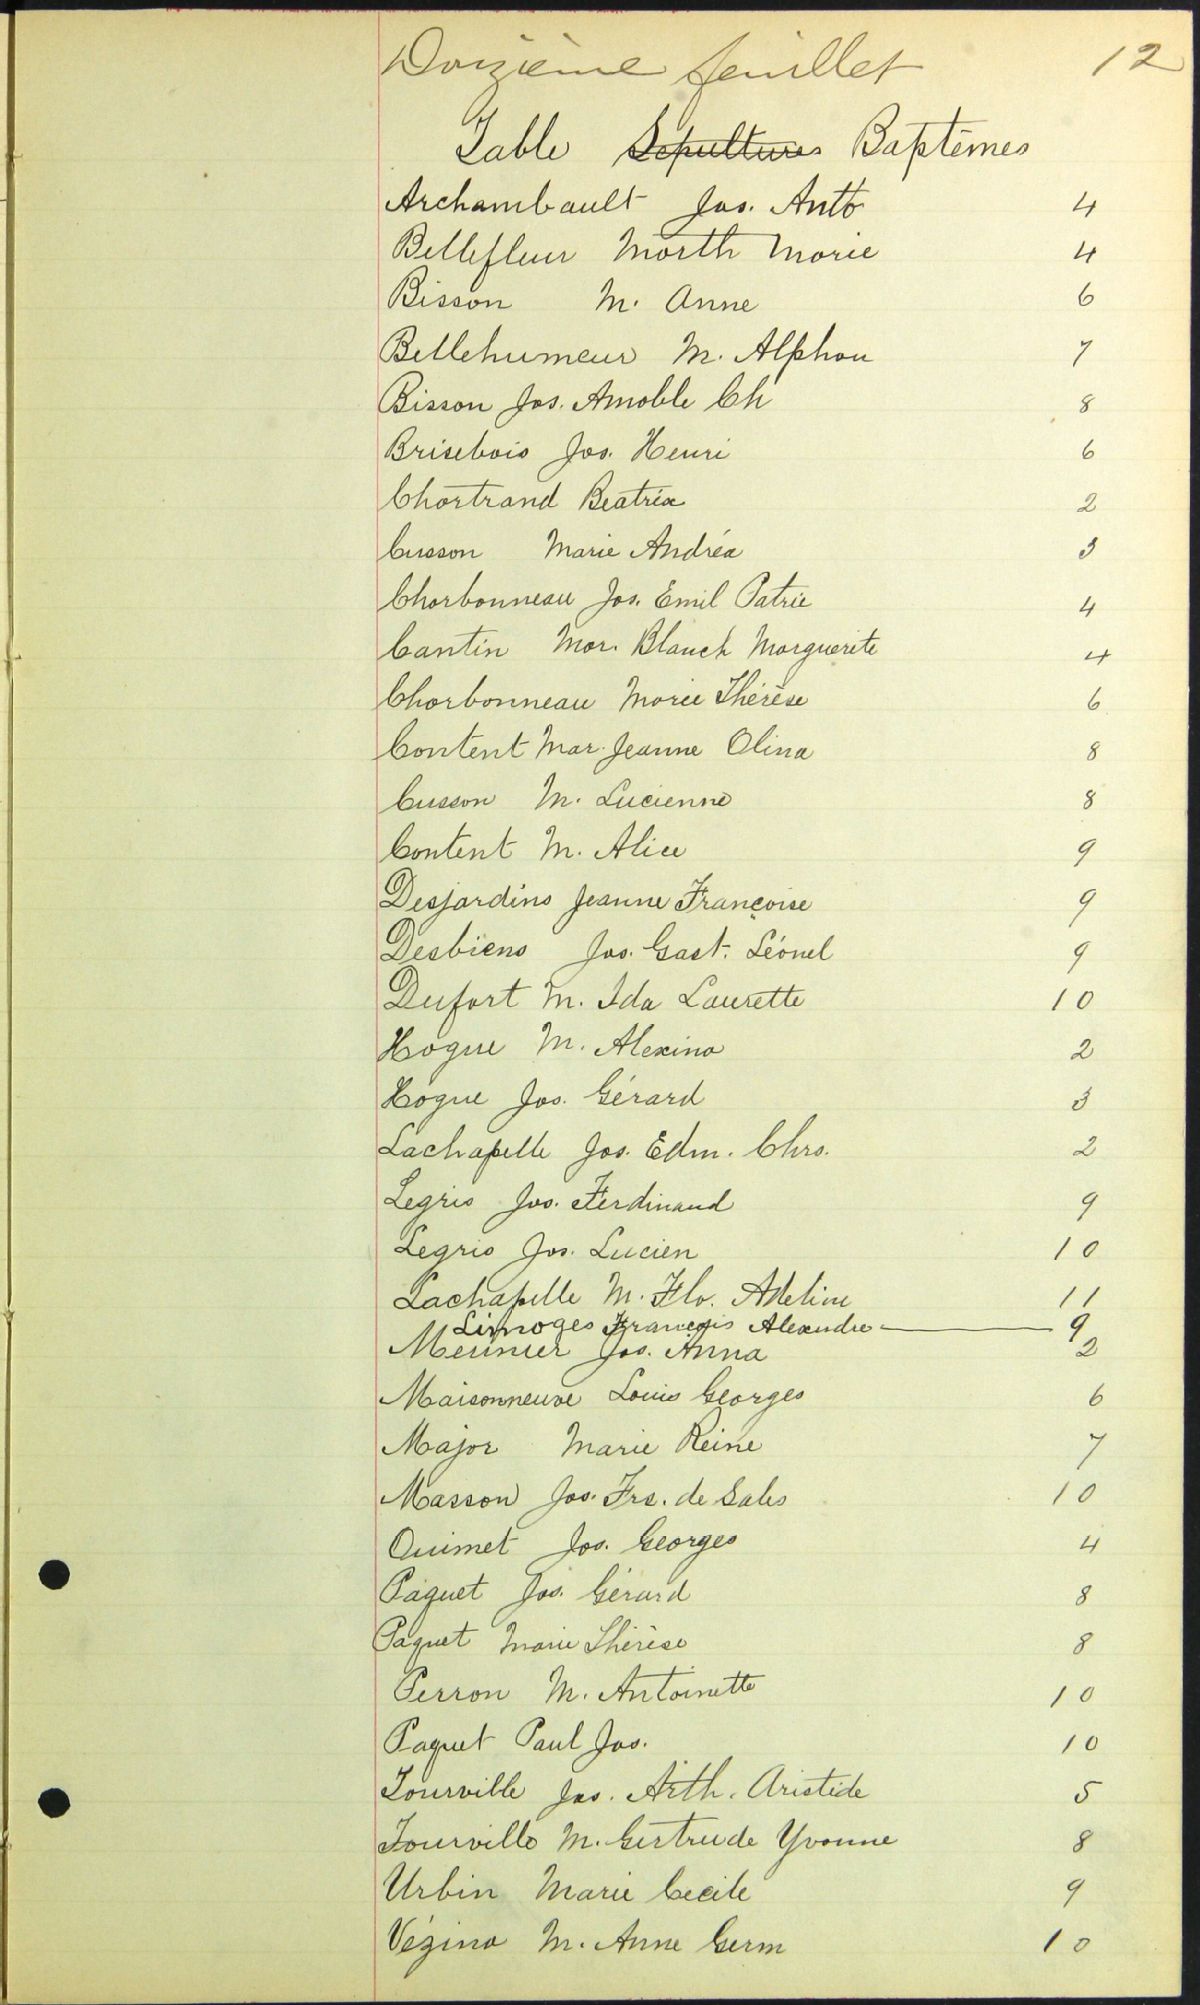 Douzième feuillet 12
Table Sépultures Baptêmes
Archambault Jos. Anto 4
Bellefleur Marth Marie 4
Bisson M. Anne 6
Bellehumeur M. Alphon 7
Bisson Jos. Amable Ch 8
Brisebois Jos. Henri 6
Chartrand Beatrix 2
Cusson Marie Andréa 3
Charbonneau Jos. Emil Patric 4
Cantin Mar. Blanch Marguerite 4
Charbonneau Marie Thérèse 6
Content Mar. Jeanne Olina 8
Cusson M. Lucienne 8
Content M. Alice 9
Desjardins Jeanne Françoise 9
Desbiens Jos. Gast. Léonel 9
Dufort M. Ida Laurette 10
Hogue M. Alexina 2
Hogue Jos. Gérard 3
Lachapelle Jos. Edm. Chrs. 2
Legris Jos. Ferdinand 9
Legris Jos. Lucien 10
Lachapelle M. Flo. Adeline 11
Limoges François Alexandre 9
Meunier Jos. Anna 2
Maisonneuve Louis Georges 6
Major Marie Reine 7
Masson Jos. Frs. de Sales 10
Ouimet Jos. Georges 4
Paquet Jos. Gérard 8
Paquet Marie Thérèse 8
Perron M. Antoinette 10
Paquet Paul Jos. 10
Tourville Jos. Arth. Aristide 5
Tourville M. Gertrude Yvonne 8
Urbin Marie Cecile 9
Vézina M. Anne Germ 10